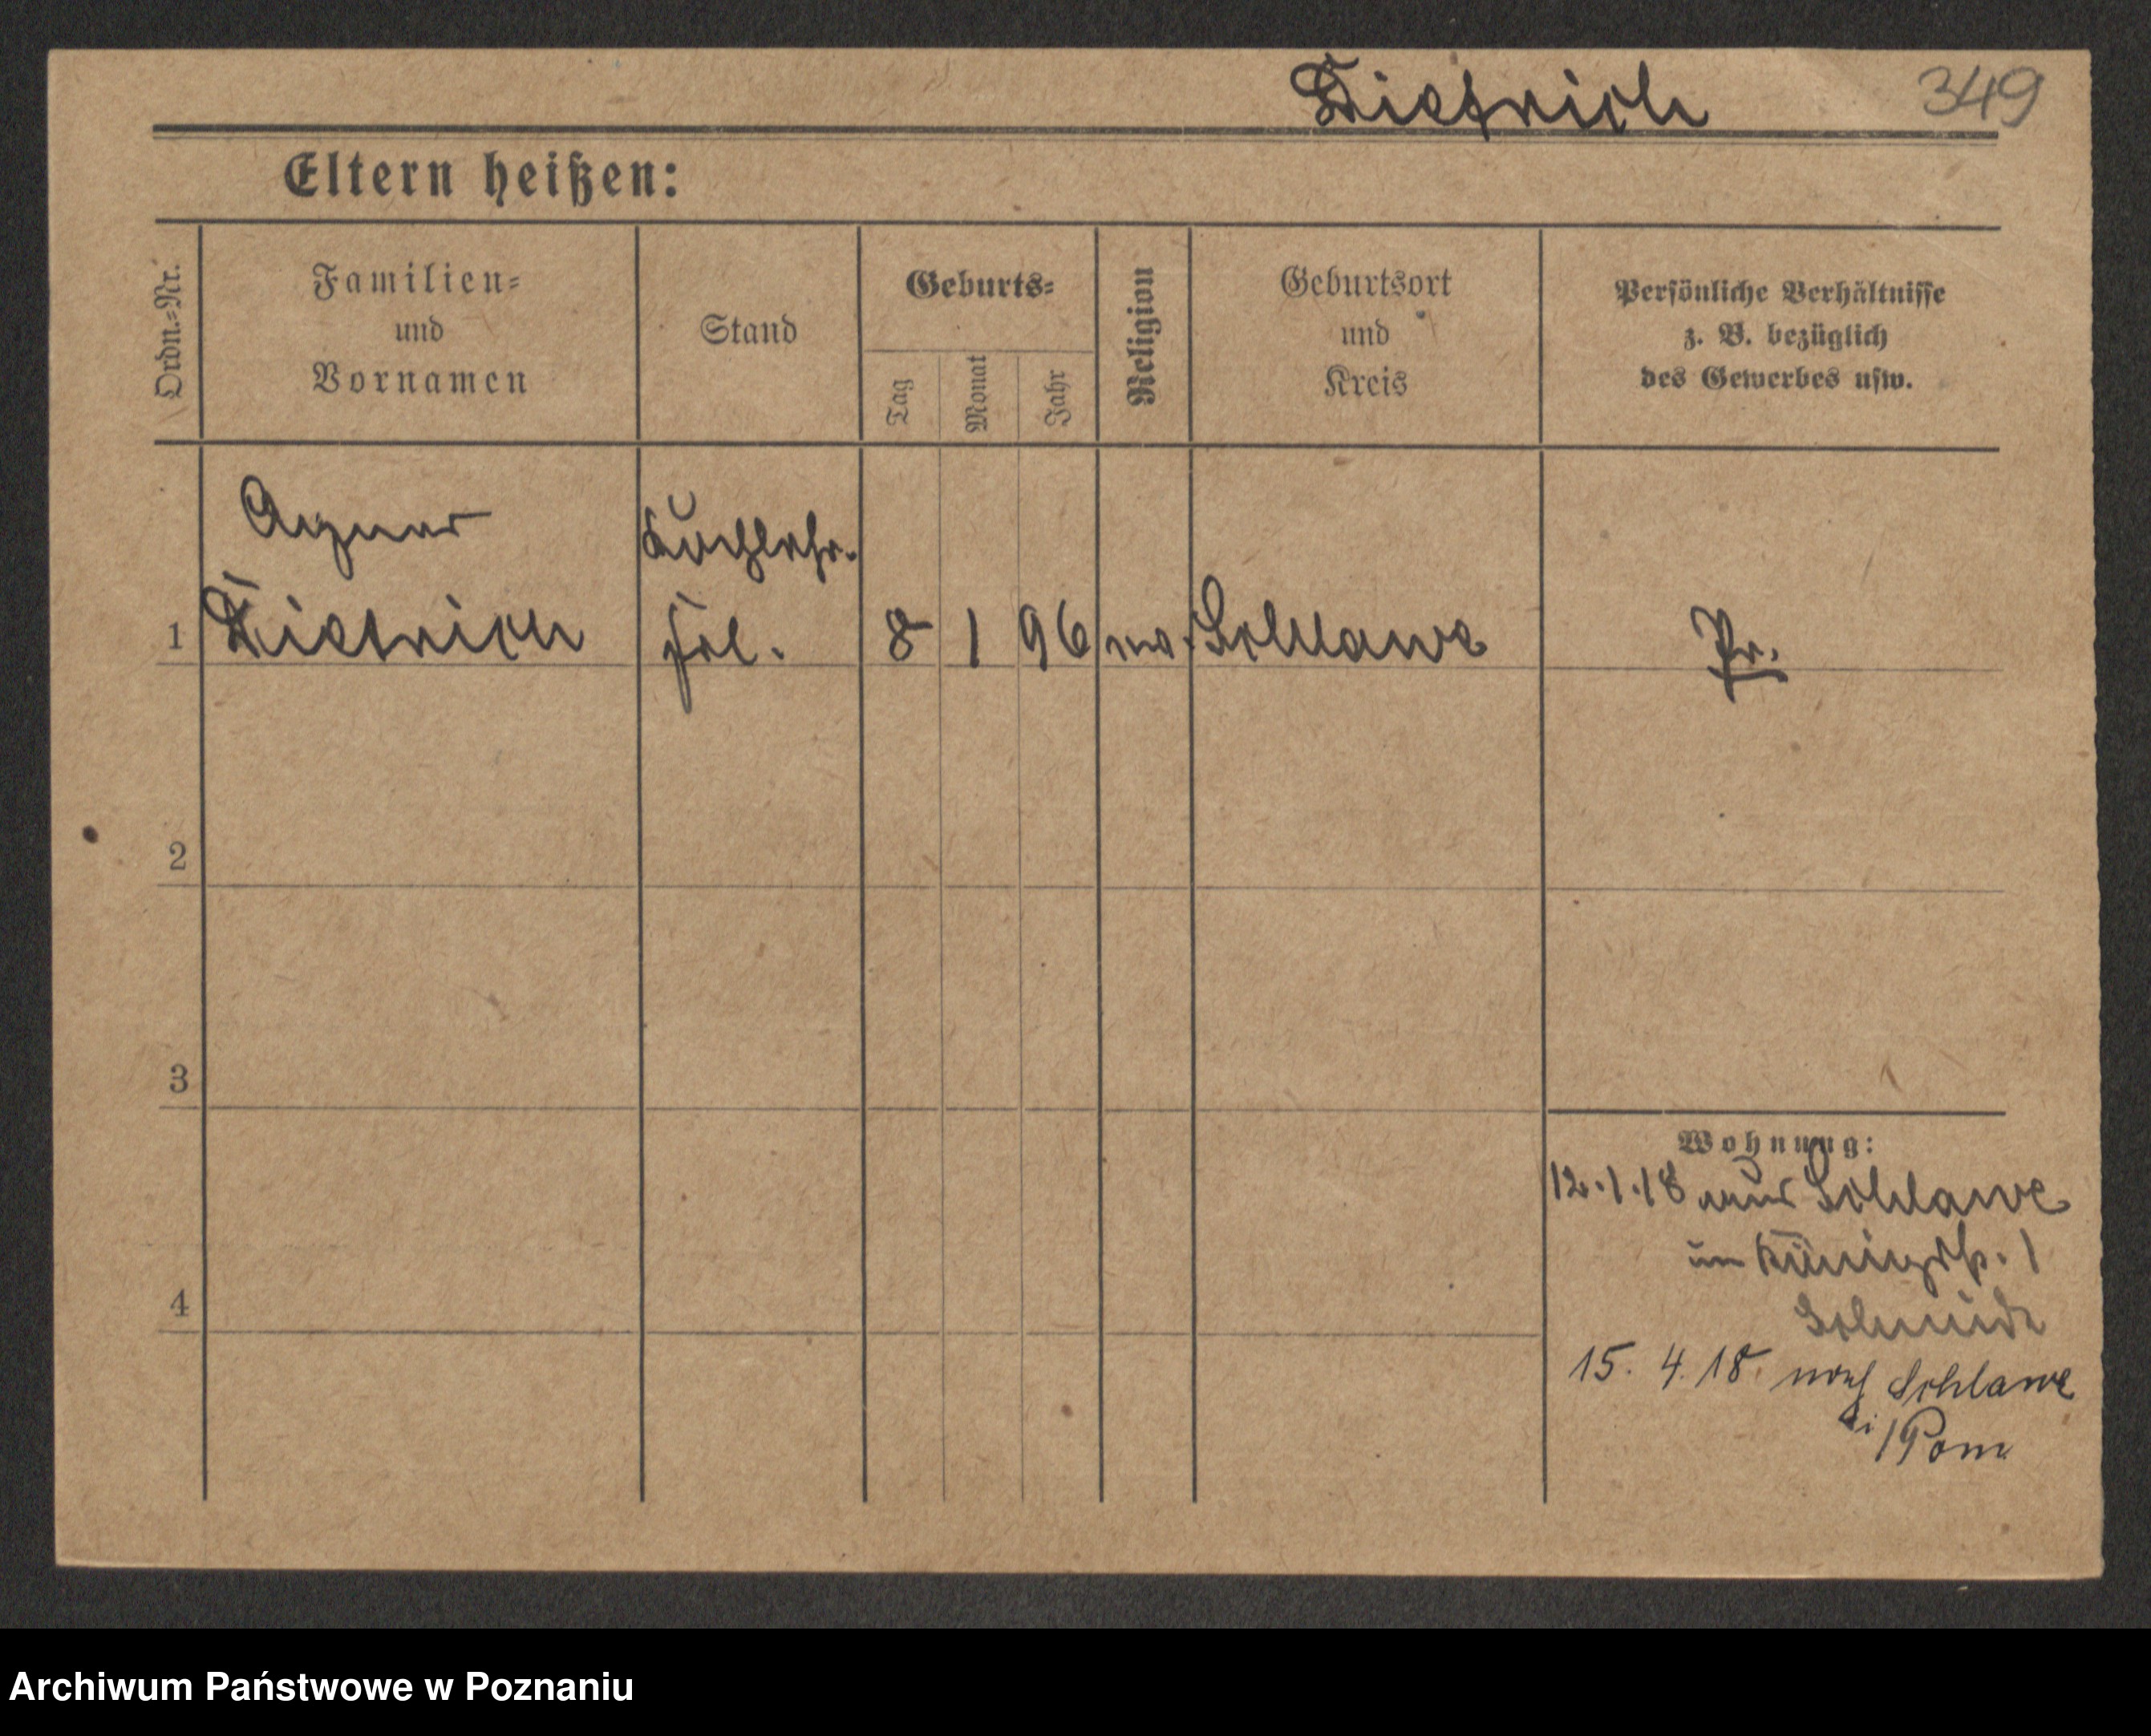 Dietrich 349
Eltern heißen:
Ordn.=Nr.
Familien=
und
Vornamen
Stand
Geburts=
Tag
Monat
Jahr
Religion
Geburtsort
und
Kreis
Persönliche Verhältnisse
z. B. bezüglich
des Gewerbes usw.
Agnes Kochlehr.
1 Dietrich frl. 8 1 96 ev. Schlawe Pr.
2
3
4
Wohnung:
12.1.18 aus Schlawe
in Königstr. 1
Schmidt
15. 4. 18. nach Schlawe
i/Pom
Archiwum Państwowe w Poznaniu